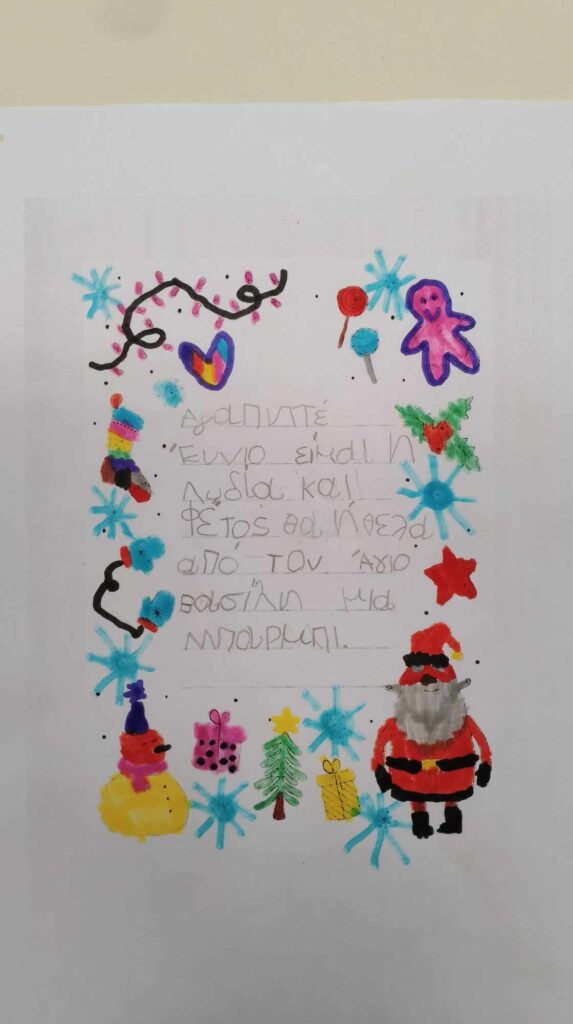 Αγαπιιτέ
Έυνιο είμαι η
Λυδία και
Φέτος θα ήθελα
από τον Άγιο
βασίλη μια
Μπαρμπι.